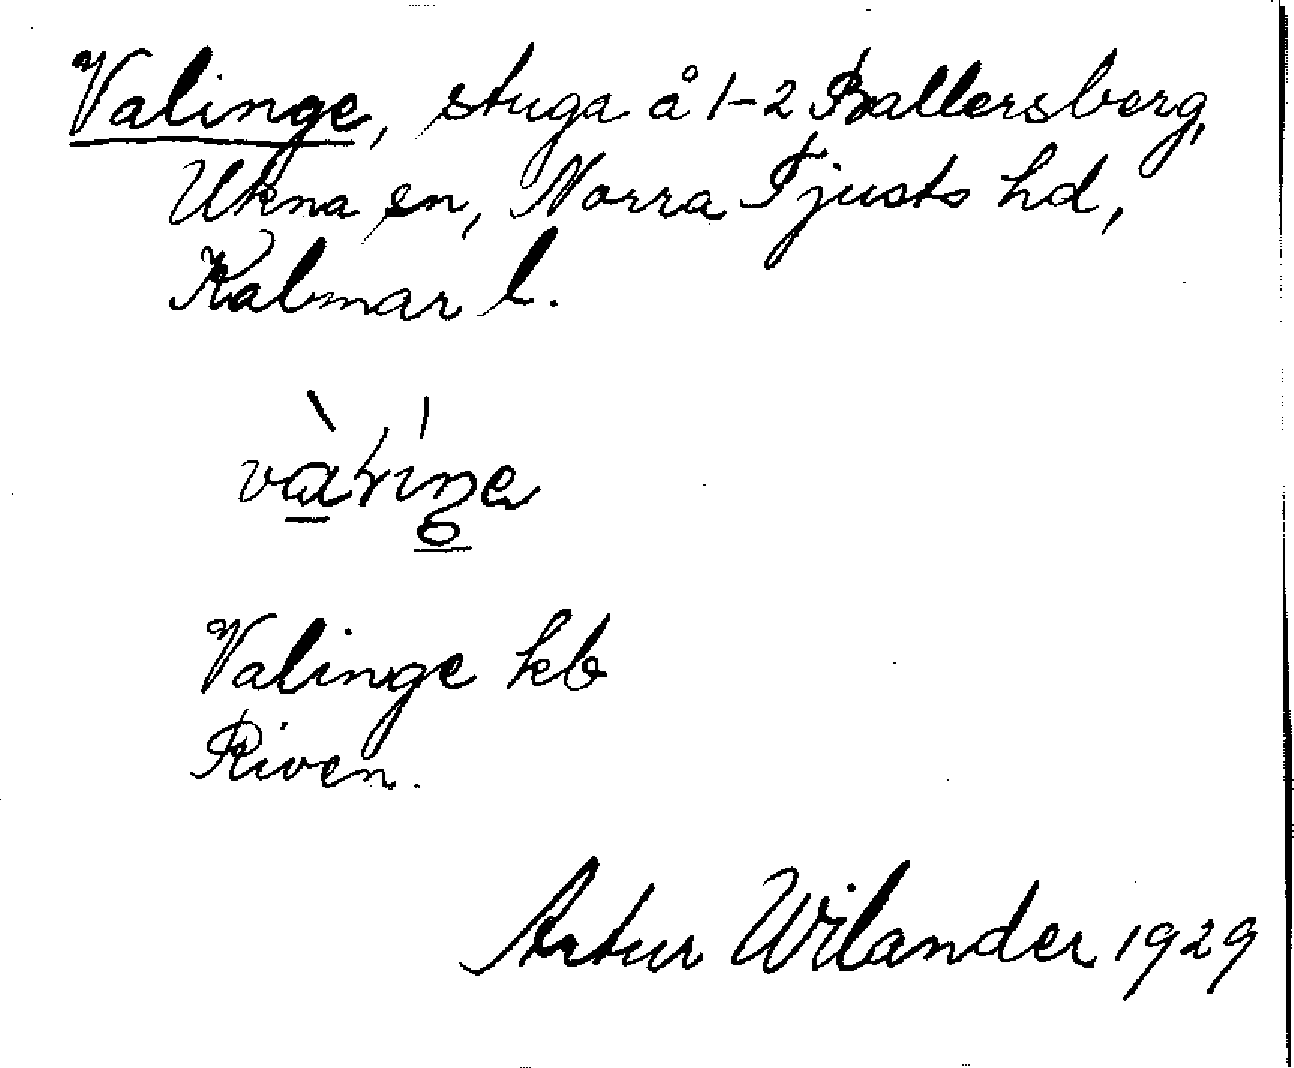 Valinge, stuga å 1-2 Ballersberg,
Ukna sn, Norra Tjusts hd,
Kalmar l.
Valinge kb
Riven.
Artur Wilander 1929